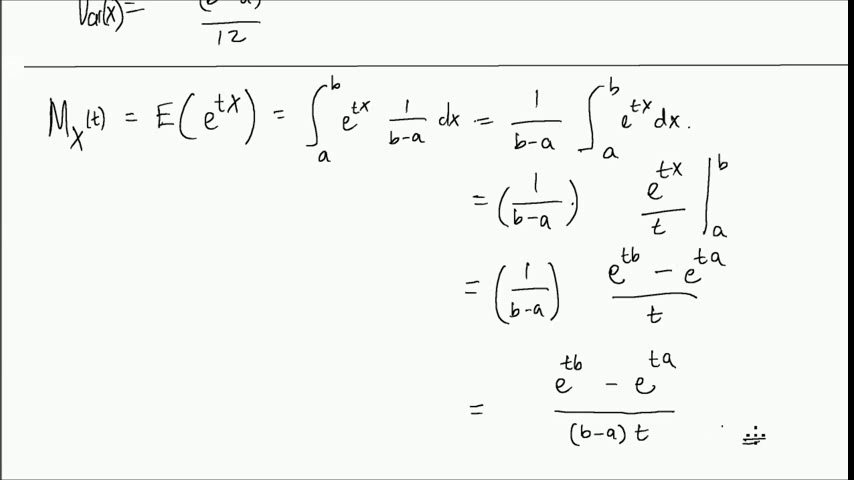 Var(x) = (b-a) / 12
M_X(t) = E(e^{tX}) = ∫_a^b e^{tx} 1/(b-a) dx = 1/(b-a) ∫_a^b e^{tx} dx.
= (1/(b-a)) · e^{tx}/t |_a^b
= (1/(b-a)) (e^{tb} - e^{ta})/t
= (e^{tb} - e^{ta})/((b-a)t)